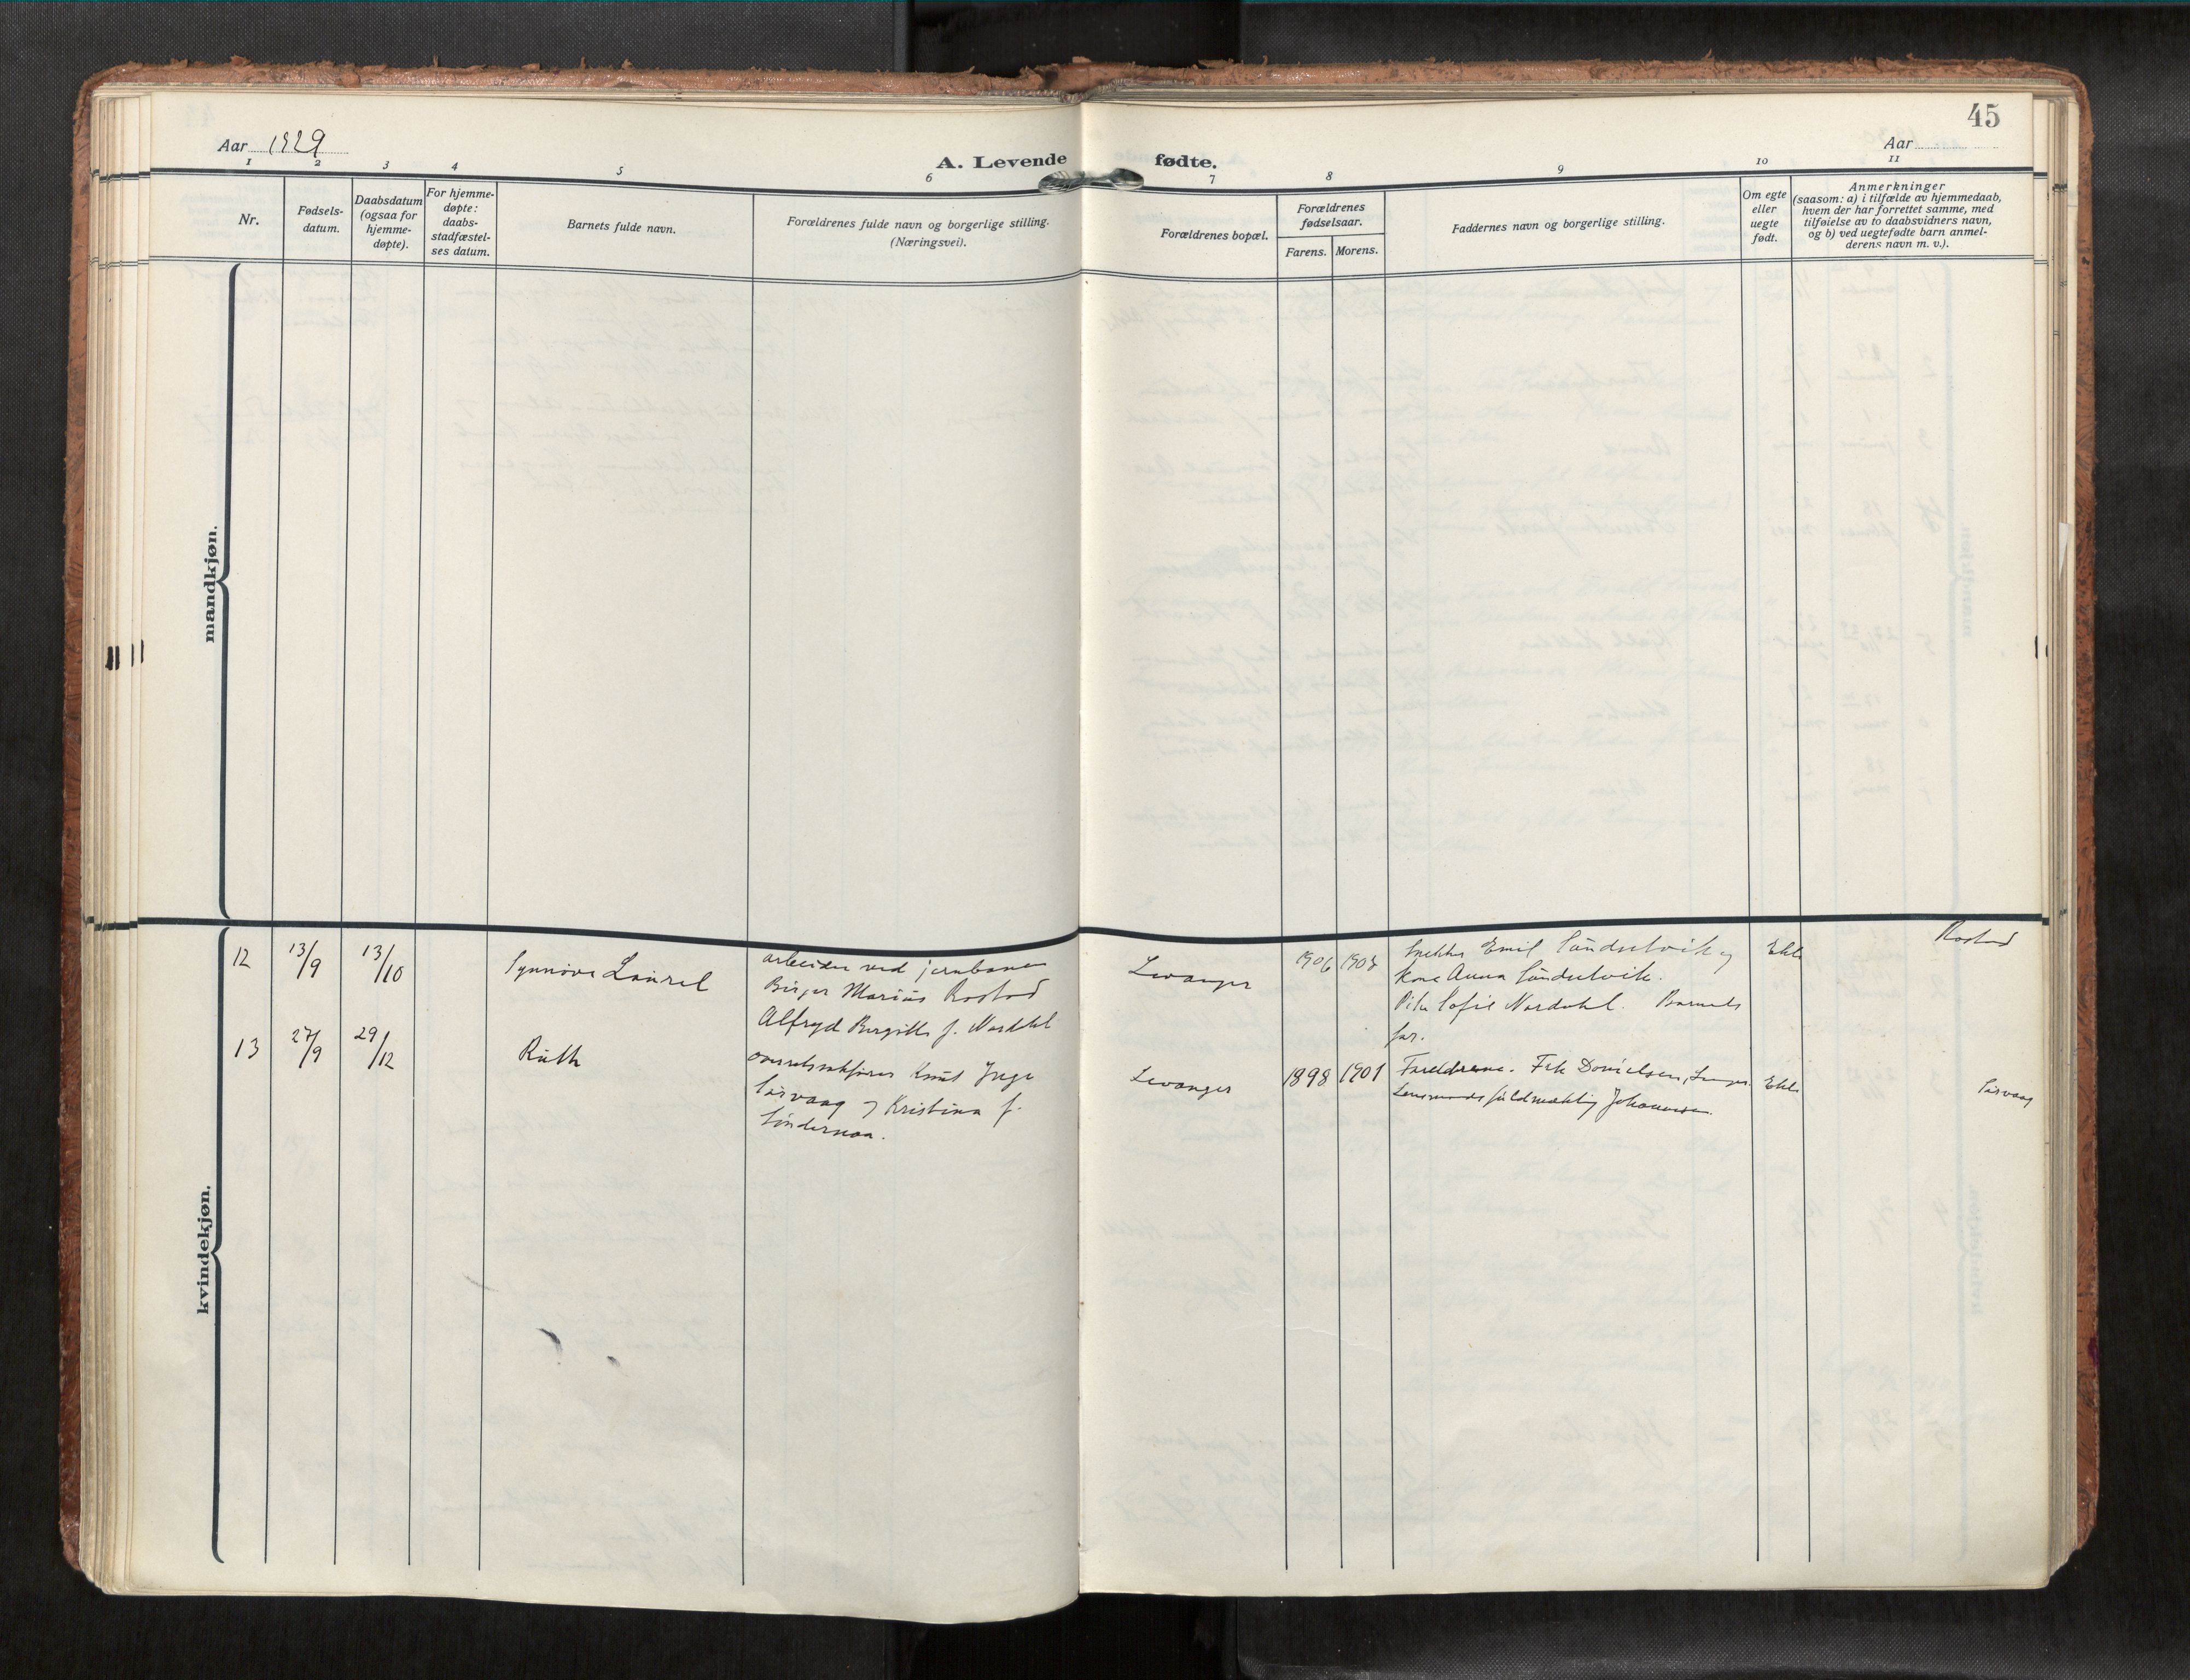 45
Aar 1929
Aar
A. Levende fødte.
1 2 3 4 5 6 7 8 9 10 11
Nr.
Fødsels-
datum.
Daabsdatum
(ogsaa for
hjemme-
døpte).
For hjemme-
døpte:
daabs-
stadfæstel-
ses datum.
Barnets fulde navn.
Forældrenes fulde navn og borgerlige stilling.
(Næringsvei).
Forældrenes bopæl.
Forældrenes
fødselsaar.
Farens. Morens.
Faddernes navn og borgerlige stilling.
Om egte
eller
uegte
født.
Anmerkninger
(saasom: a) i tilfælde av hjemmedaab,
hvem der har forrettet samme, med
tilføielse av to daabsvidners navn,
og b) ved uegtefødte barn anmel-
derens navn m. v.).
mandkjøn.
kvindekjøn.
12
13/9
13/10
Synnöve Laurel
arbeider ved jernbanen
Birger Marius Rostad
Alfryd Bergitte f. Nordahl
Levanger
1906
Snekker Emil Sundselvik og
Kone Anna Sundselvik.
Pike Sofie Nordahl. Barnets
far.
Ekte
Rostad
13
27/9
29/12
Ruth
overretssakfører Knut Inge
Sørvaag og Kristina f.
Levanger
1898 1901
Foreldrene. Frk Danielsen,
Lensmandsfuldmæktig Johannesen.
Ekte
Sørvaag